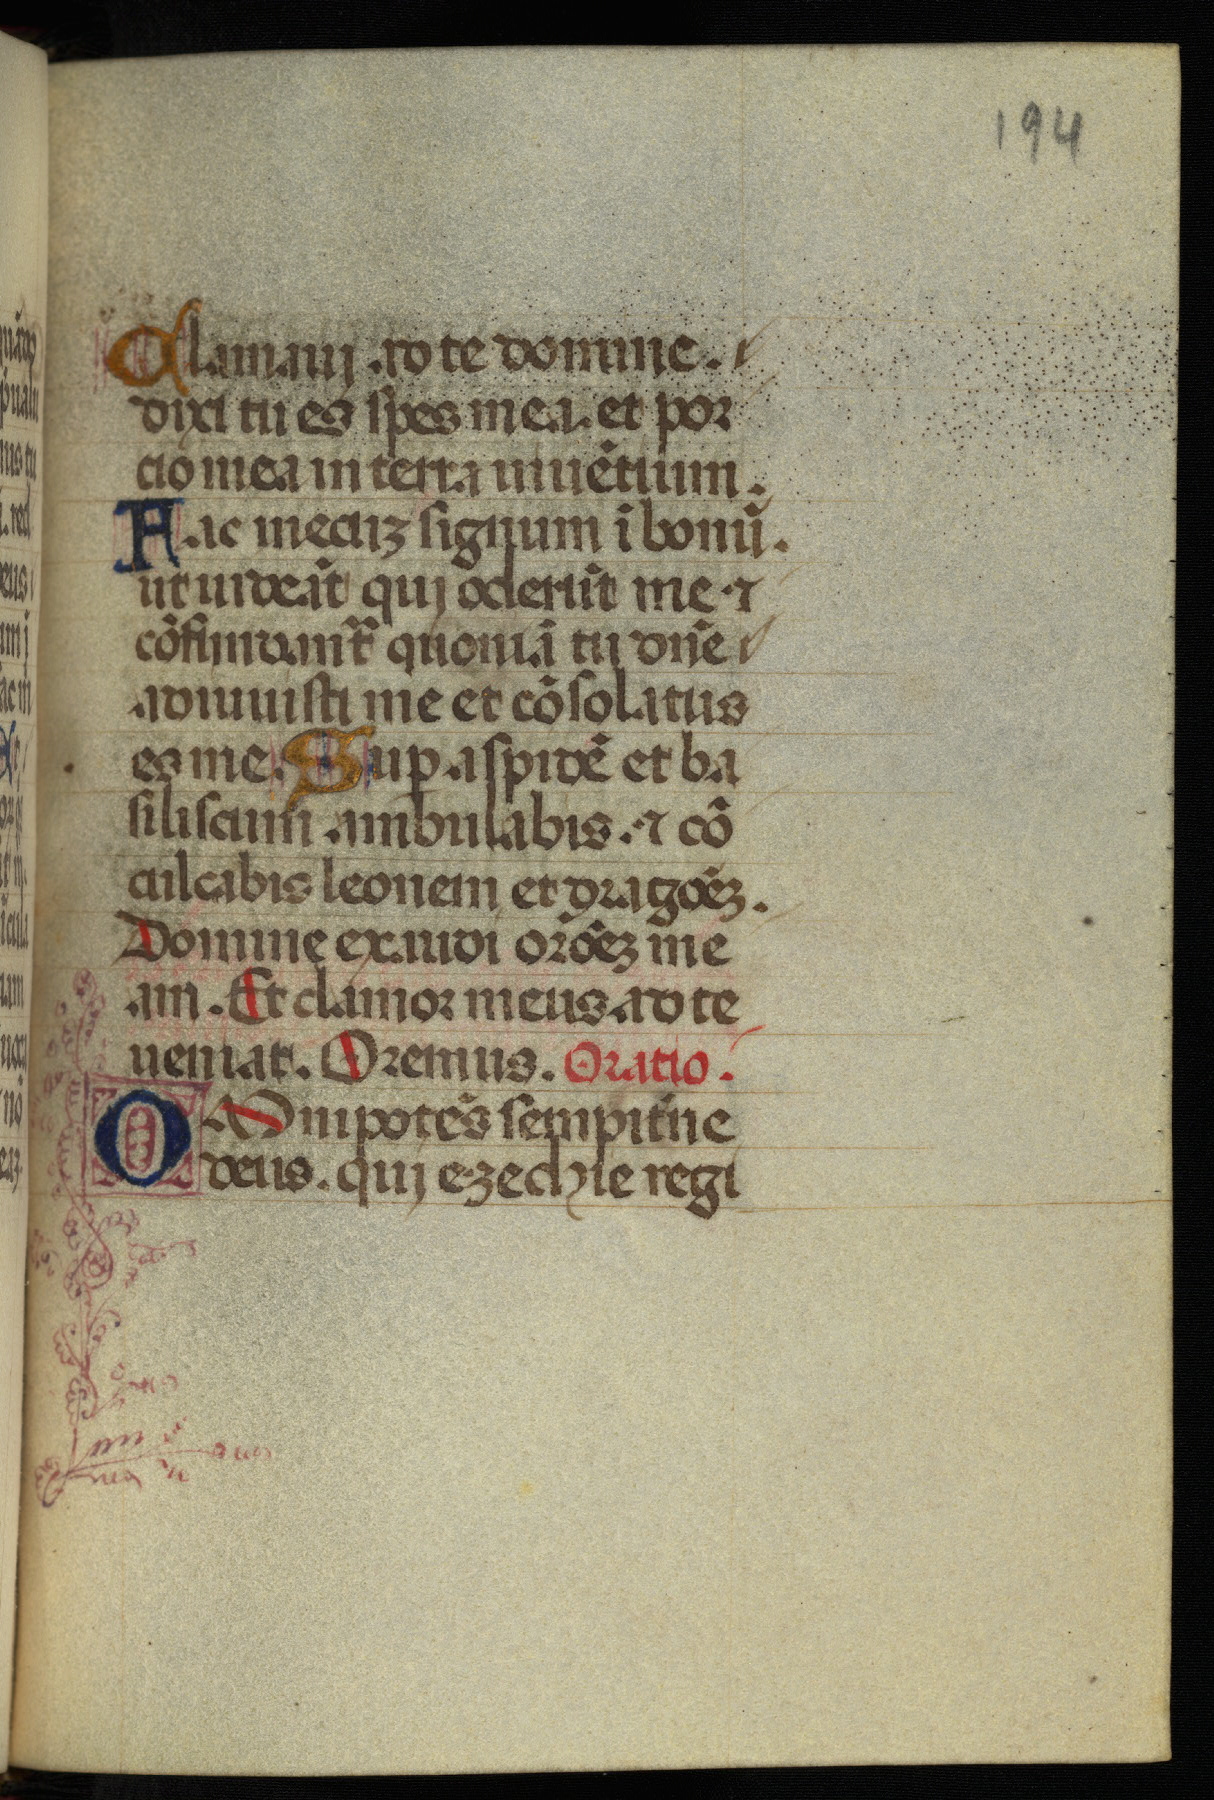 194
Clamaui ad te domine.
dixi tu es spes mea. et por
cio mea in terra uiuẽtium.
Fac mecuz signum ĩ bonũ.
ut uideãt qui oderũt me ⁊
cõfundantᷣ quoniã tu dñe
adiuuisti me et cõsolatus
es me. Sup aspidẽ et ba
siliscum ambulabis. ⁊ cõ
culcabis leonem et dragõez.
Domine exaudi orõez me
am. Et clamor meus ad te
ueniat. Oremus. Oratio.
OMnipotẽs sempitñe
deus. qui ezechie regi